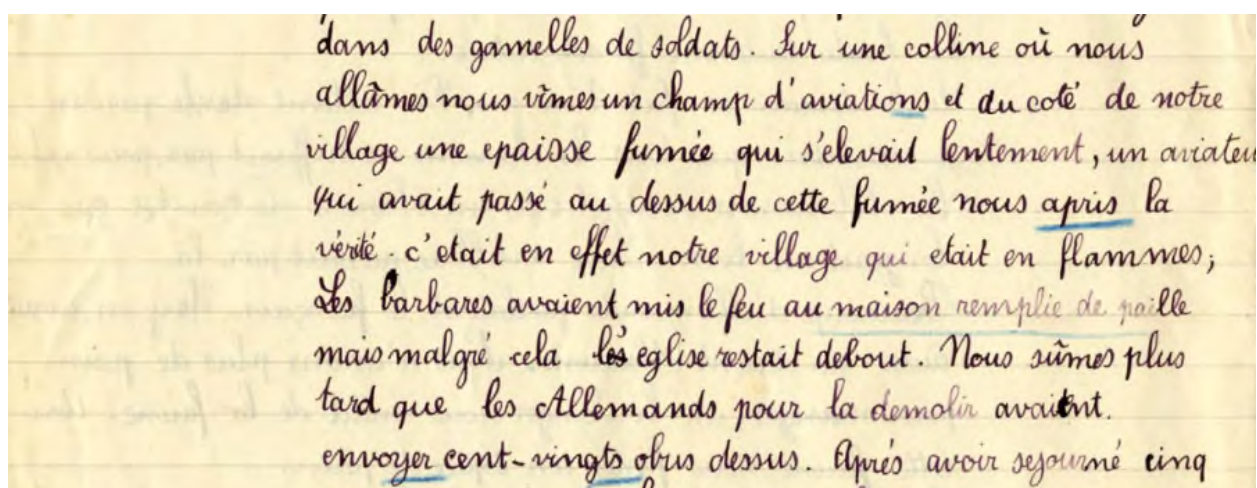 dans des gamelles de soldats. Sur une colline où nous
allâmes nous vîmes un champ d'aviations et du coté de notre
village une epaisse fumée qui s'elevait lentement, un aviateu
qui avait passé au dessus de cette fumée nous apris la
vérité c'etait en effet notre village qui etait en flammes;
Les barbares avaient mis le feu au maison remplie de paille
mais malgré cela les eglise restait debout. Nous sûmes plus
tard que les Allemands pour la demolir avaient.
envoyer cent-vingts obus dessus. Aprés avoir sejourné cinq